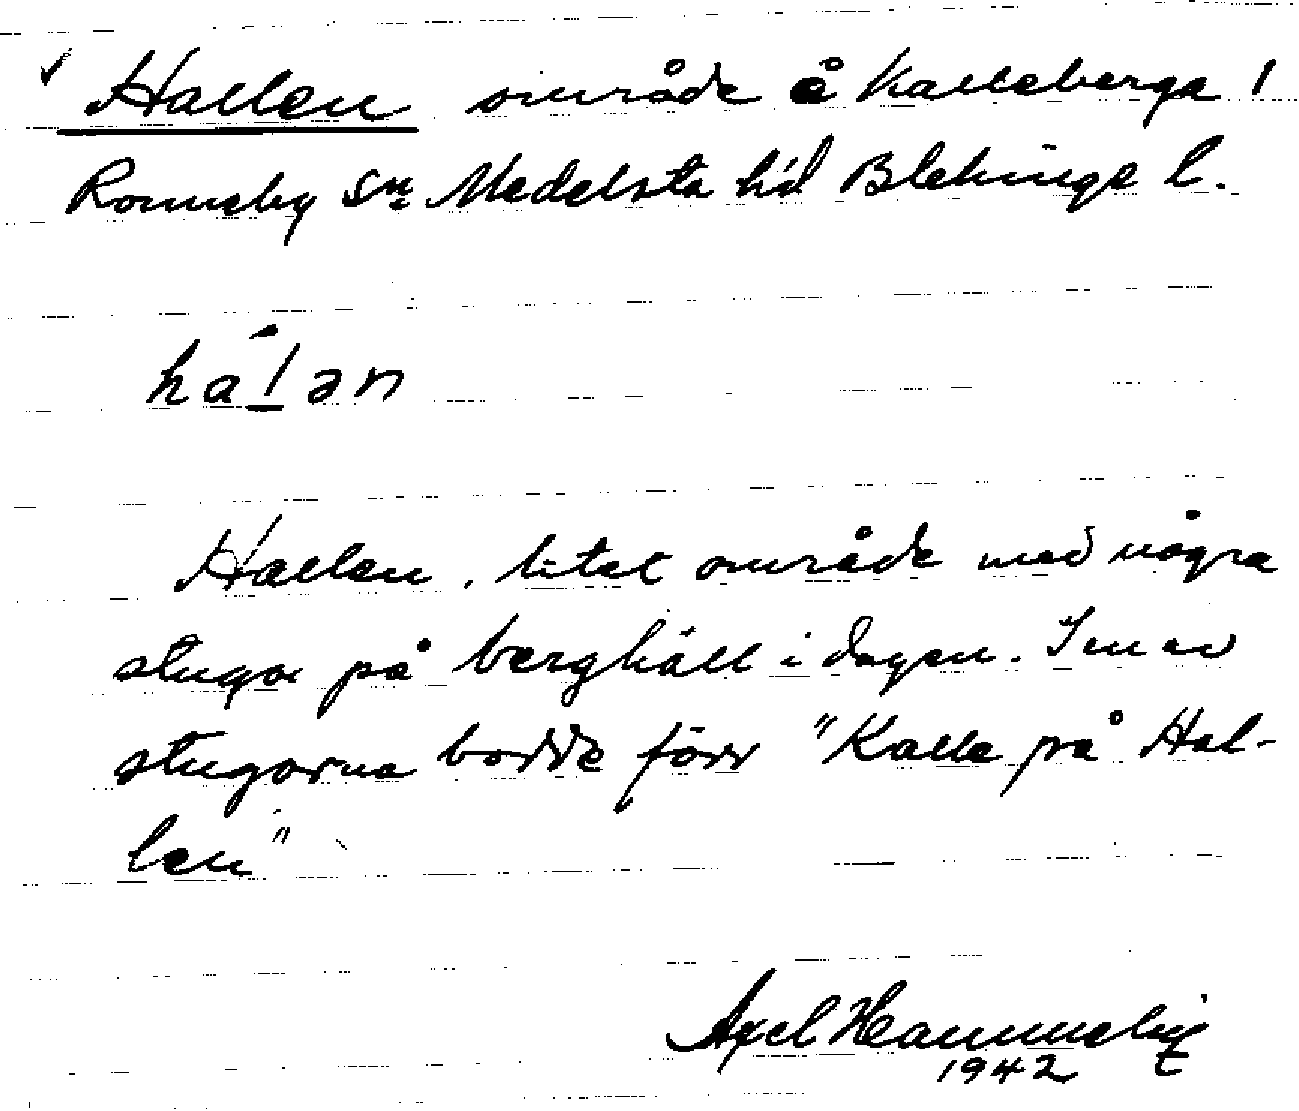 Hallen område å Kalleberga 1
Ronneby sn Medelsta hd Blekinge l.
hálən
Hallen, litet område med några
stugor på berghäll i dagen. I en av
stugorna bodde förr "Kalle på Hal-
len"
Axel
1942